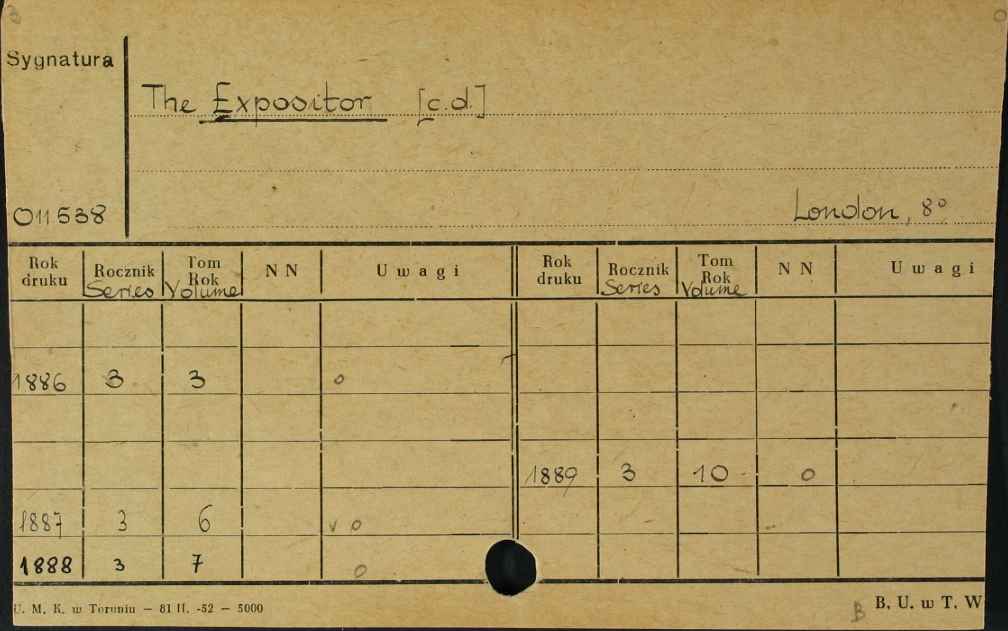 Sygnatura
The Expositor [c.d.]
011538
London, 8°
Rok druku Rocznik Series Tom Rok Volume NN Uwagi Rok druku Rocznik Series Tom Rok Volume NN Uwagi
1886 3 3 o
1889 3 10 - o
1887 3 6 v o
1888 3 7 o
U. M. K. w Toruniu — 81 II. -52 — 5000
B B. U. w T. W